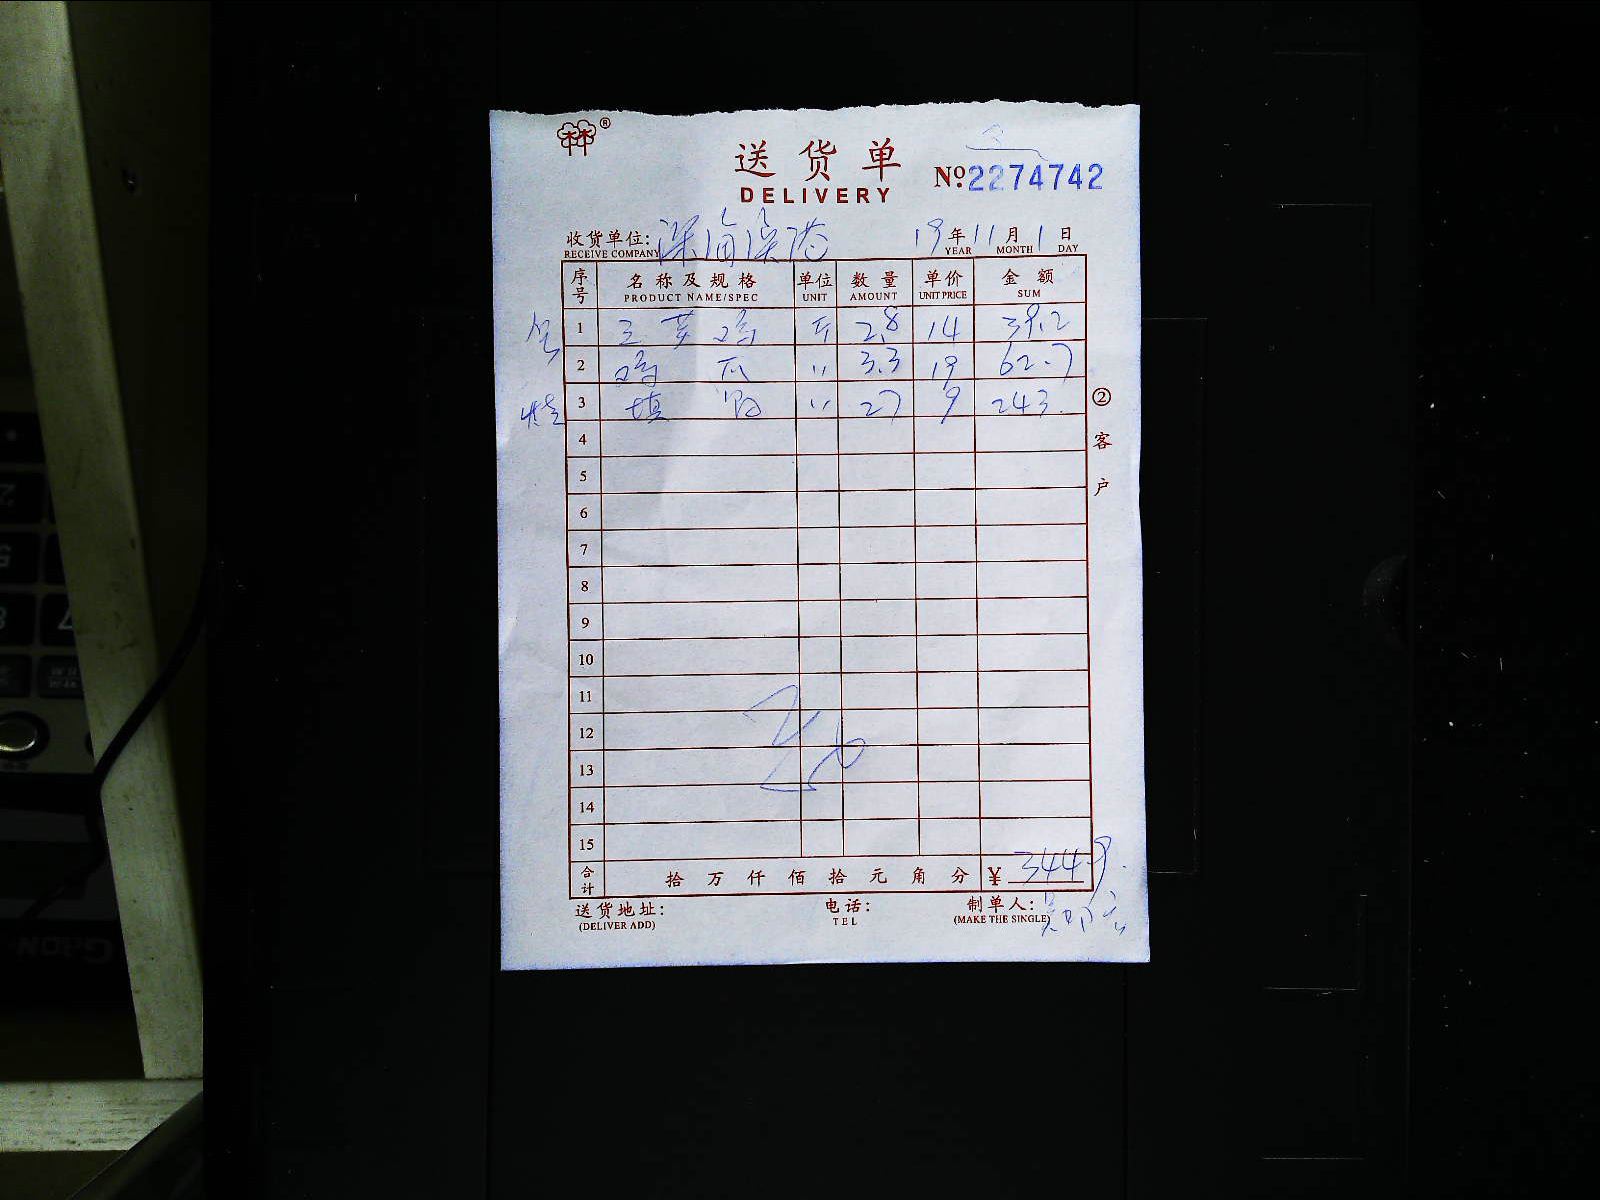 林®
送货单
DELIVERY
No.2274742
收货单位:深海渔港 19年11月1日
RECEIVE COMPANY YEAR MONTH DAY
序号 名称及规格 单位 数量 单价 金额
PRODUCT NAME/SPEC UNIT AMOUNT UNIT PRICE SUM
1 三黄鸡 斤 2.8 14 39.2
2 鸡爪 〃 3.3 19 62.7
烧 3 填鸭 〃 27 9 243
4
5
6
7
8
9
10
11
12
13
14
15
合计 拾万仟佰拾元角分 ¥ 344.9
②客户
送货地址: 电话: 制单人:
(DELIVER ADD) TEL (MAKE THE SINGLE)
GidN